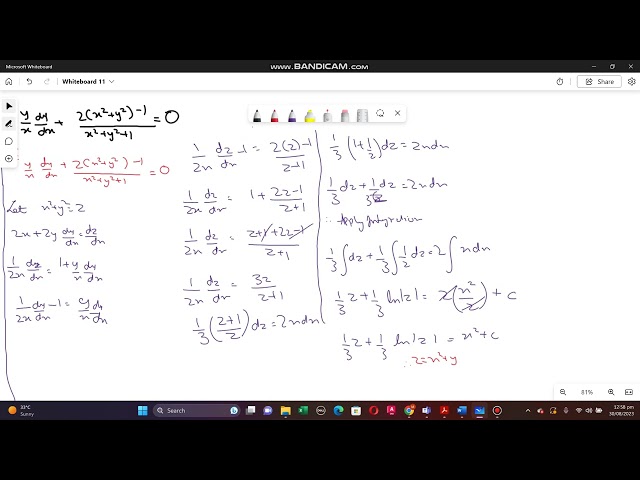 WWW.BANDICAM.COM
Microsoft Whiteboard
Whiteboard 11
Share
y/x dy/dx + 2(x²+y²)-1/x²+y²+1 = 0
y/x dy/dx + 2(x²+y²)-1/x²+y²+1 = 0
Let x²+y²=z
2x+2y dy/dx = dz/dx
1/2x dz/dx = 1+y/x dy/dx
1/2x dz/dx -1 = y/x dy/dx
1/2x dz/dx -1 = 2(z)-1/z+1
1/2x dz/dx = 1 + 2z-1/z+1
1/2x dz/dx = z+1+2z-1/z+1
1/2x dz/dx = 3z/z+1
1/3 (z+1/z) dz = 2xdx
1/3 (1+1/z) dz = 2xdx
1/3 dz + 1/3 1/z dz = 2xdx
∴ Apply Integration
1/3 ∫dz + 1/3 ∫1/z dz = 2∫xdx
1/3 z + 1/3 ln|z| = 2(x²/2) + c
1/3 z + 1/3 ln|z| = x²+c
∴ z=x²+y
81%
33°C
Sunny
Search
12:58 pm
30/08/2023